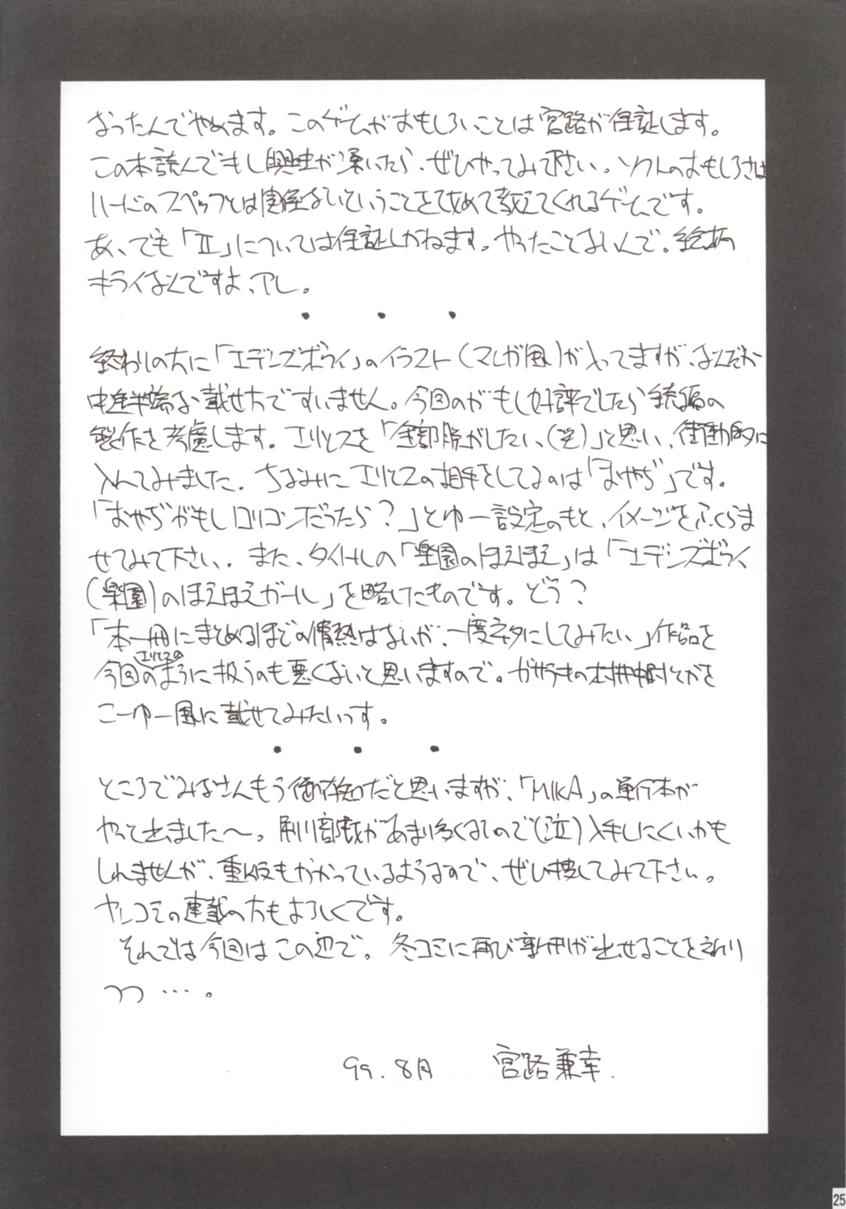 なったんでやめます。このゲームがおもしろいことは宮路が保証します。
この本読んでもし興味が湧いたら、ぜひやってみて下さい。ソフトのおもしろさは
ハードのスペックとは関係ないということを改めて教えてくれるゲームです。
あ、でも「II」については保証しかねます。やったことないんで。絵柄
キライなんですよ、アレ。
・ ・ ・
終わりの方に「エデンズボゥイ」のイラスト(マンガ風)が入ってますが、なんだか
中途半端な載せ方ですいません。今回のがもし好評でしたら続編の
製作を考慮します。エリシスを「全部脱がしたい、(笑)」と思い、衝動的に
入れてみました。ちなみにエリシスの相手をしてるのは「おやぢ」です。
「おやぢがもしロリコンだったら?」とゆー設定のもと、イメージをふくらま
せてみて下さい。また、タイトルの「楽園のほえほえ」は「エデンズボゥイ
(楽園)のほえほえガール」を略したものです。どう?
「本一冊にまとめるほどの情熱はないが、一度ネタにしてみたい」作品を
今回のエリシスのように扱うのも悪くないと思いますので。ガサラキの
こーゆー風に載せてみたいっす。
・ ・ ・
ところでみなさんもう御存知だと思いますが、「MIKA」の単行本が
やっと出ました〜。刷部数があまり多くないので(泣)入手しにくいかも
しれませんが、重版もかかっているようなので、ぜひ捜してみて下さい。
ヤンコミの連載の方もよろしくです。
それでは今回はこの辺で。冬コミに再び新刊が出せることを祈り
つつ…。
99.8月 宮路兼幸.
25